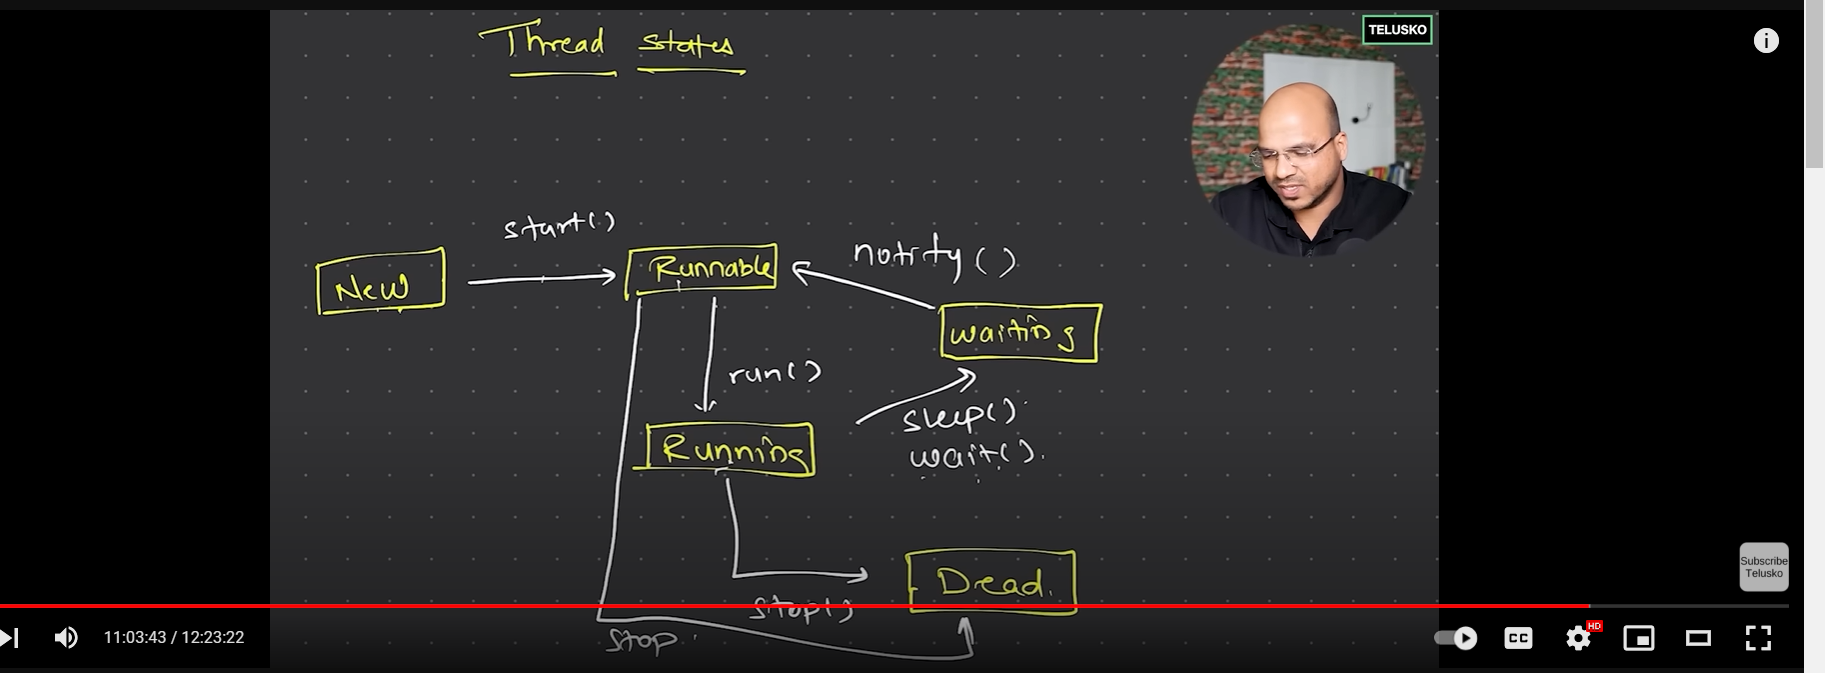 Thread States
TELUSKO
start()
notify()
New
Runnable
waiting
run()
sleep()
wait().
Running
Dead.
stop()
stop
Subscribe
Telusko
11:03:43 / 12:23:22
CC
HD